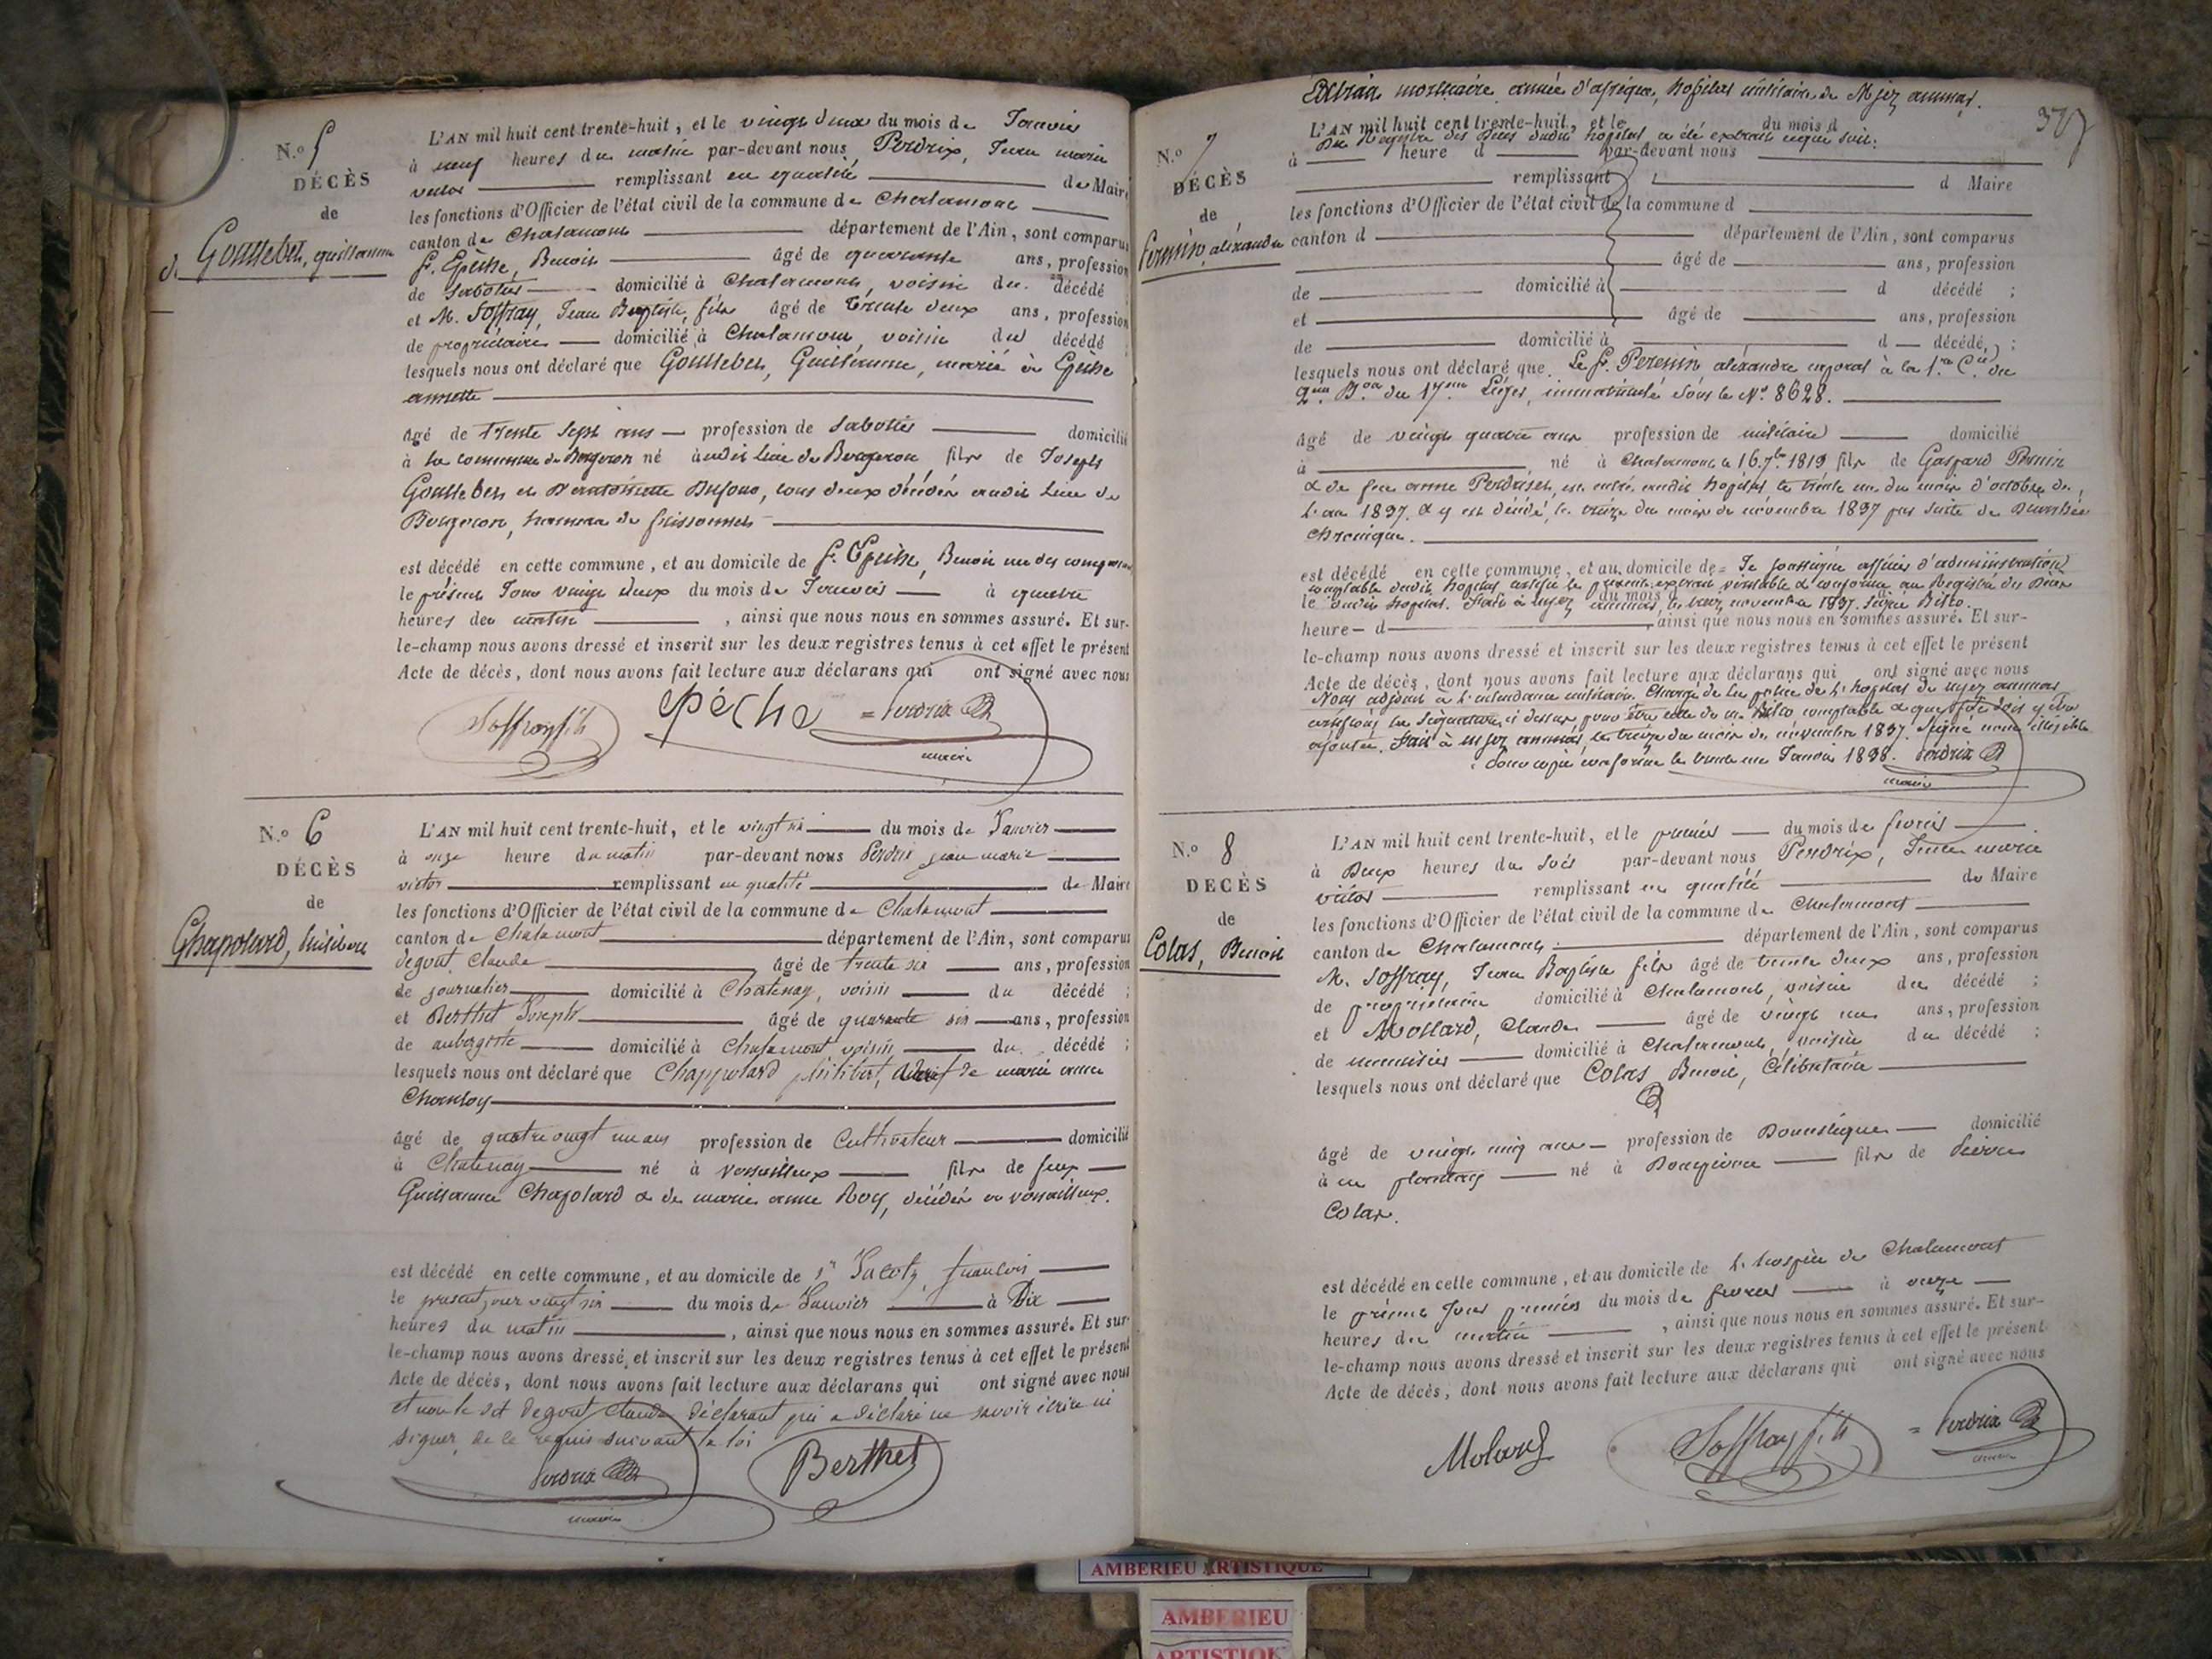 N.o 5
DÉCÈS
de
Goutteben, guillaume
L'AN mil huit cent trente-huit, et le vingt deux du mois de Janvier
à neuf heures du matin par-devant nous Perdrix, Jean marie
victor remplissant en qualité de Maire
les fonctions d'Officier de l'état civil de la commune de Chalamont
canton de Chalamont département de l'Ain, sont comparus
Benoit âgé de quarante ans, profession
de Sabotier domicilié à Chalamont, voisin du décédé ;
et M. Soffray, Jean Baptiste, fils âgé de trente deux ans, profession
de propriétaire domicilié à Chalamont, voisin du décédé ;
lesquels nous ont déclaré que Goutteben, Guillaume, marié à
annette
âgé de trente sept ans profession de Sabotier domicilié
à la commune de né audit lieu de fils de Joseph
Goutteben et d'antoinette tous deux décédés audit lieu de
hameau de
est décédé en cette commune, et au domicile de Benoit un des
le présent Jour vingt deux du mois de Janvier à quatre
heures du matin, ainsi que nous nous en sommes assuré. Et sur-
le-champ nous avons dressé et inscrit sur les deux registres tenus à cet effet le présent
Acte de décès, dont nous avons fait lecture aux déclarans qui ont signé avec nous
Soffray fils Perdrix
maire
N.o 6
DÉCÈS
de
Chapolard, philibert
L'AN mil huit cent trente-huit, et le vingt six du mois de Janvier
à onze heure du matin par-devant nous Perdrix jean marie
victor remplissant en qualité de Maire
les fonctions d'Officier de l'état civil de la commune de Chalamont
canton de Chalamont département de l'Ain, sont comparus
Degout Claude âgé de trente six ans, profession
de journalier domicilié à Chatenay, voisin du décédé ;
et Berthet Joseph âgé de quarante six ans, profession
de aubergiste domicilié à Chalamont voisin du décédé ;
lesquels nous ont déclaré que Chappolard philibert, de marie anne
âgé de quatre vingt un ans profession de Cultivateur domicilié
à Chatenay né à Versailleux fils de feux
Guillaume Chapolard & de marie anne Roy, décédés à versailleux.
est décédé en cette commune, et au domicile de Sr françois
le present jour vingt six du mois de Janvier à Dix
heures du matin, ainsi que nous nous en sommes assuré. Et sur-
le-champ nous avons dressé et inscrit sur les deux registres tenus à cet effet le présent
Acte de décès, dont nous avons fait lecture aux déclarans qui ont signé avec nous
et non le dit Degout Claude déclarant qui a déclaré ne savoir écrire ni
signer, de ce requis suivant la loi
Perdrix Berthet
maire
377
Extrait mortuaire armée d'afrique, hopital militaire de Mjez ammar.
N.o 7
DÉCÈS
de
Pernin, alexandre
L'AN mil huit cent trente-huit, et le du mois d
Du Registre des Décès dudit hopital a été extrait ce que suit:
à heure d par-devant nous
remplissant d Maire
les fonctions d'Officier de l'état civil de la commune d
canton d département de l'Ain, sont comparus
âgé de ans, profession
de domicilié à d décédé ;
et âgé de ans, profession
de domicilié à d décédé, ;
lesquels nous ont déclaré que Le Sr. Pernin alexandre caporal à la 1.re C.ie du
2.me B.on du 17.me Léger, immatriculé sous le N.o 8628.
âgé de vingt quatre ans profession de militaire domicilié
à né à Chalamont le 16 7bre 1819 fils de Gaspard Pernin
& de feu anne est entré audit hopital le trente un du mois d'octobre de
l'an 1837. & y est décédé, le treize du mois de novembre 1837 par suite de Diarrhée
chronique.
est décédé en cette commune, et au domicile de Je soussigné officier d'administration
comptable dudit hopital certifie le présent extrait véritable & conforme au Registre des Décès
le du mois d
dudit hopital. Fait à mjez ammar, le treize novembre 1837.
heure d, ainsi que nous nous en sommes assuré. Et sur-
le-champ nous avons dressé et inscrit sur les deux registres tenus à cet effet le présent
Acte de décès, dont nous avons fait lecture aux déclarans qui ont signé avec nous
Nous adjoint à l'intendance militaire Chargé de la police de l'hopital de mjez ammar
certifions la Signature ci dessus pour être celle de m. comptable & que foi doit y être
ajoutée. Fait à mjez ammar, le treize du mois de novembre 1837. Signé nom illisible
Pour copie conforme le trente un Janvier 1838. Perdrix
maire
N.o 8
DÉCÈS
de
Colas, Benoit
L'AN mil huit cent trente-huit, et le premier du mois de fevrier
à Deux heures du soir par-devant nous Perdrix, Jean marie
victor remplissant en qualité de Maire
les fonctions d'Officier de l'état civil de la commune de Chalamont
canton de Chalamont département de l'Ain, sont comparus
M. Soffray, Jean Baptiste fils âgé de trente deux ans, profession
de propriétaire domicilié à Chalamont, voisin du décédé ;
et Mollard, Claude âgé de vingt un ans, profession
de menuisier domicilié à Chalamont, voisin du décédé ;
lesquels nous ont déclaré que Colas Benoit, Célibataire
âgé de vingt cinq ans profession de Domestique domicilié
à né à Dompierre fils de Pierre
Colas.
est décédé en cette commune, et au domicile de l'hospice de Chalamont
le présent Jour premier du mois de fevrier à onze
heures du matin, ainsi que nous nous en sommes assuré. Et sur-
le-champ nous avons dressé et inscrit sur les deux registres tenus à cet effet le présent
Acte de décès, dont nous avons fait lecture aux déclarans qui ont signé avec nous
Molard Soffray fils Perdrix
maire
AMBERIEU ARTISTIQUE
AMBERIEU